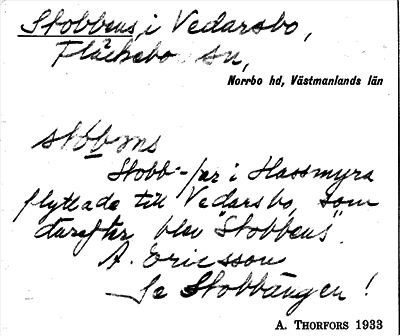 Stobbens i Vedarsbo,
Fläckebo sn,
Norrbo hd, Västmanlands län
stòb̲ns
Stobb-Per i Hassmyra
flyttade till Vedarsbo, som
därefter blev "Stobbens".
A. Ericsson
Se Stobbängen!
A. THORFORS 1933